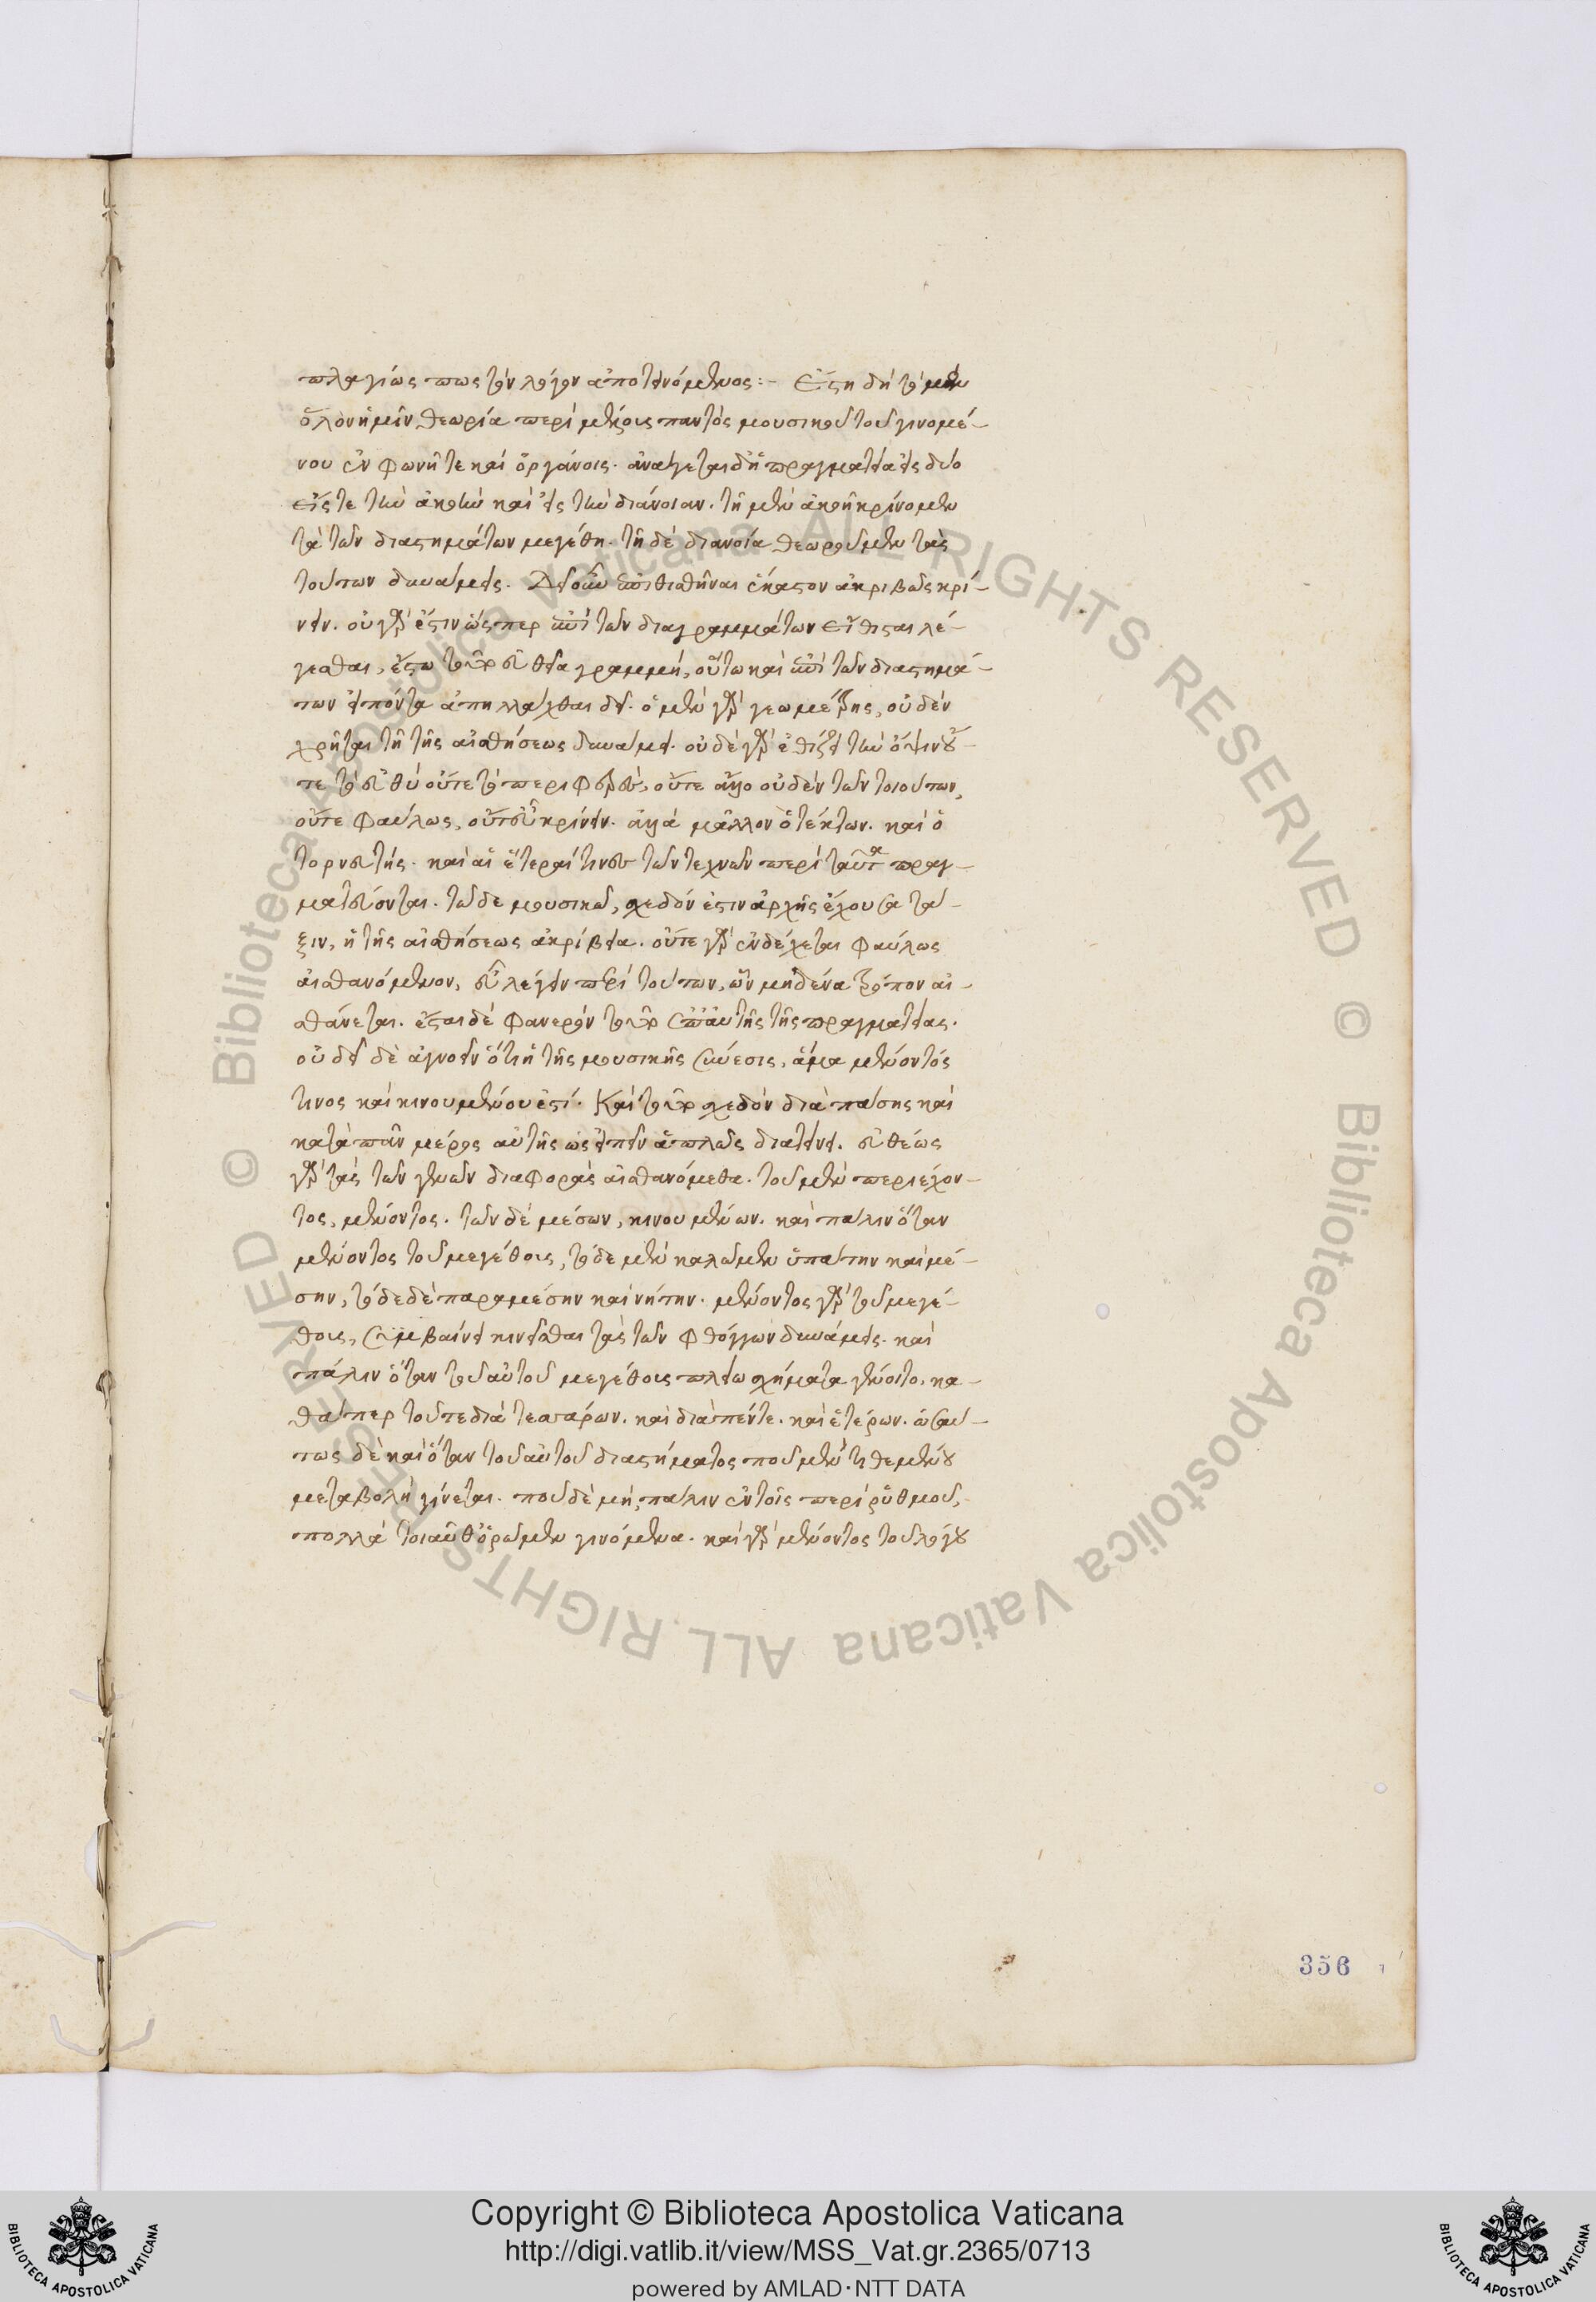 πλαγίως πως τὸν λόγον ἀποτεινόμενος:- Ἔστι δὴ τὸ μὲν
ὅλον ἡμῖν θεωρία περὶ μέλους παντὸς μουσικοῦ τοῦ γινομέ-
νου ἐν φωνῇ τε καὶ ὀργάνοις. ἀνάγεται δ' ἡ πραγματεία εἰς δύο
εἴς τε τὴν ἀκοὴν καὶ εἰς τὴν διάνοιαν. τῇ μὲν ἀκοῇ κρίνομεν
τὰ τῶν διαστημάτων μεγέθη. τῇ δὲ διανοίᾳ θεωροῦμεν τὰς
τούτων δυνάμεις. Δεῖ οὖν ἐπεθισθῆναι ἕκαστον ἀκριβῶς κρί-
νειν. οὐ γάρ ἐστιν ὥσπερ ἐπὶ τῶν διαγραμμάτων εἴθισται λέ-
γεσθαι, ἔστω τοῦτο εὐθεῖα γραμμή, οὕτω καὶ ἐπὶ τῶν διαστημά-
των εἰπόντα ἀπηλλάχθαι δεῖ. ὁ μὲν γὰρ γεωμέτρης, οὐδὲν
χρῆται τῇ τῆς αἰσθήσεως δυνάμει. οὐδὲ γὰρ ἐθίζει τὴν ὄψιν οὔ-
τε τὸ εὐθὺ οὔτε τὸ περιφερὲς, οὔτε ἄλλο οὐδὲν τῶν τοιούτων,
οὔτε φαύλως, οὔτε εὖ κρίνειν. ἀλλὰ μᾶλλον ὁ τέκτων. καὶ ὁ
τορνευτής. καὶ αἱ ἕτεραί τινες τῶν τεχνῶν περὶ ταῦτα πραγ-
ματεύονται. τῷ δὲ μουσικῷ, σχεδόν ἐστιν ἀρχῆς ἔχουσα τά-
ξιν, ἡ τῆς αἰσθήσεως ἀκρίβεια. οὔτε γὰρ ἐνδέχεται φαύλως
αἰσθανόμενον, εὖ λέγειν περὶ τούτων, ὧν μηδένα τρόπον αἰ-
σθάνεται. ἔσται δὲ φανερὸν τοῦτο ἐπ' αὐτῆς τῆς πραγματείας.
οὐ δεῖ δὲ ἀγνοεῖν ὅτι ἡ τῆς μουσικῆς σύνεσις, ἅμα μένοντός
τινος καὶ κινουμένου ἐστί. Καὶ τοῦτο σχεδὸν διὰ πάσης καὶ
κατὰ πᾶν μέρος αὐτῆς ὡς εἰπεῖν ἁπλῶς διατείνει. εὐθέως
γὰρ τὰς τῶν γενῶν διαφορὰς αἰσθανόμεθα. τοῦ μὲν περιέχον-
τος, μένοντος. τῶν δὲ μέσων, κινουμένων. καὶ πάλιν ὅταν
μένοντος τοῦ μεγέθους, τόδε μὲν καλῶμεν ὑπάτην καὶ μέ-
σην, τόδε δὲ παραμέσην καὶ νήτην. μένοντος γὰρ τοῦ μεγέ-
θους, συμβαίνει κινεῖσθαι τὰς τῶν φθόγγων δυνάμεις. καὶ
πάλιν ὅταν τοῦ αὐτοῦ μεγέθους πλείω σχήματα γένοιτο. κα-
θάπερ τοῦ τε διὰ τεσσάρων. καὶ διὰ πέντε. καὶ ἑτέρων. ὡσαύ-
τως δὲ καὶ ὅταν τοῦ αὐτοῦ διαστήματος ποῦ μὲν τιθεμένου
μεταβολὴ γίνεται. ποῦ δὲ μή, πάλιν ἐν τοῖς περὶ ῥυθμοὺς,
πολλὰ τοιαῦθ' ὁρῶμεν γινόμενα. καὶ γὰρ μένοντος τοῦ λόγου
356
Copyright © Biblioteca Apostolica Vaticana
http://digi.vatlib.it/view/MSS_Vat.gr.2365/0713
powered by AMLAD･NTT DATA
BIBLIOTECA APOSTOLICA VATICANA
BIBLIOTECA APOSTOLICA VATICANA
© Biblioteca Apostolica Vaticana ALL RIGHTS RESERVED © Biblioteca Apostolica Vaticana ALL RIGHTS RESERVED